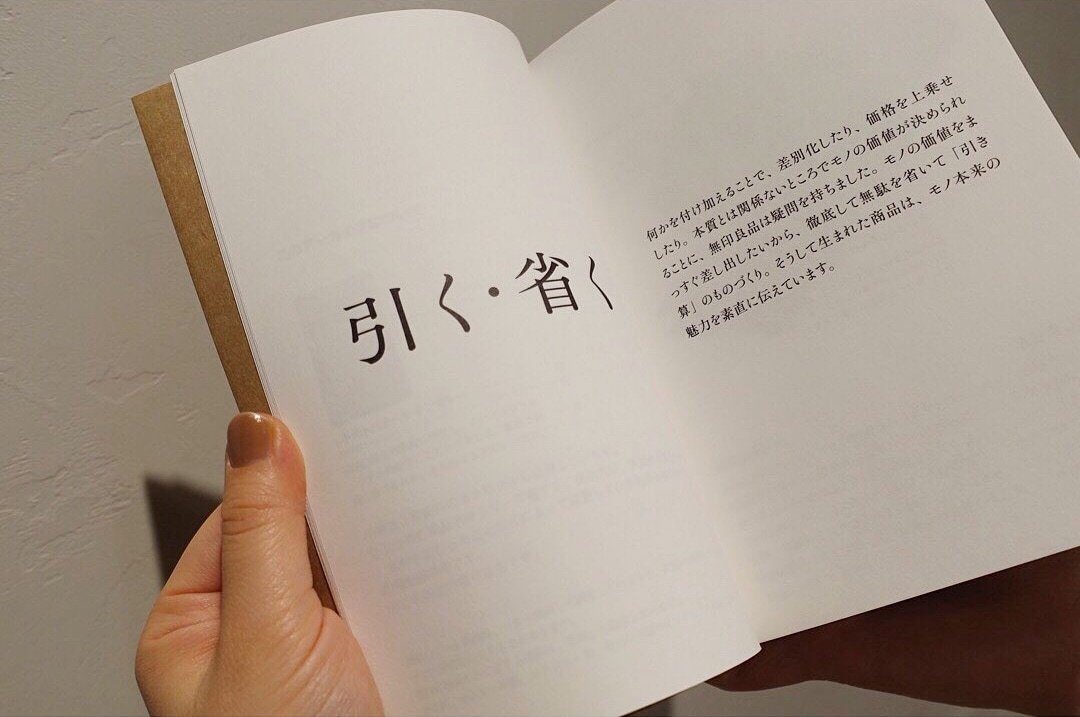 引く・省く
何かを付け加えることで、差別化したり、価格を上乗せ
したり。本質とは関係ないところでモノの価値が決められ
ることに、無印良品は疑問を持ちました。モノの価値をま
っすぐ差し出したいから、徹底して無駄を省いて「引き
算」のものづくり。そうして生まれた商品は、モノ本来の
魅力を素直に伝えています。